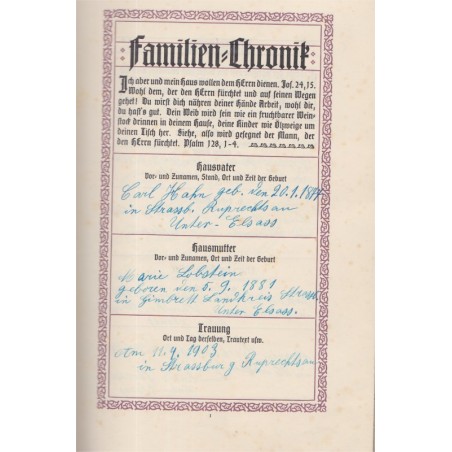 Familien-Chronik
Ich aber und mein Haus wollen dem HErrn dienen. Jos. 24,15.
Wohl dem, der den HErrn fürchtet und auf seinen Wegen
gehet! Du wirst dich nähren deiner Hände Arbeit; wohl dir,
du hast's gut. Dein Weib wird sein wie ein fruchtbarer Wein-
stock drinnen in deinem Hause, deine Kinder wie Ölzweige um
deinen Tisch her. Siehe, also wird gesegnet der Mann, der
den HErrn fürchtet. Psalm 128, 1-4.
Hausvater
Vor- und Zunamen, Stund, Ort und Zeit der Geburt
Carl Hahn geb. den 20.1.
in Strassb. Ruprechtsau
Unter-Elsass
Hausmutter
Vor- und Zunamen, Ort und Zeit der Geburt
Marie Lobstein
geboren den 6. 9. 1881
in Gimbrett Landkreis
Unter Elsass.
Trauung
Ort und Tag derselben, Trautext usw.
Am 11.9.1903
in Strassburg Ruprechtsau
1